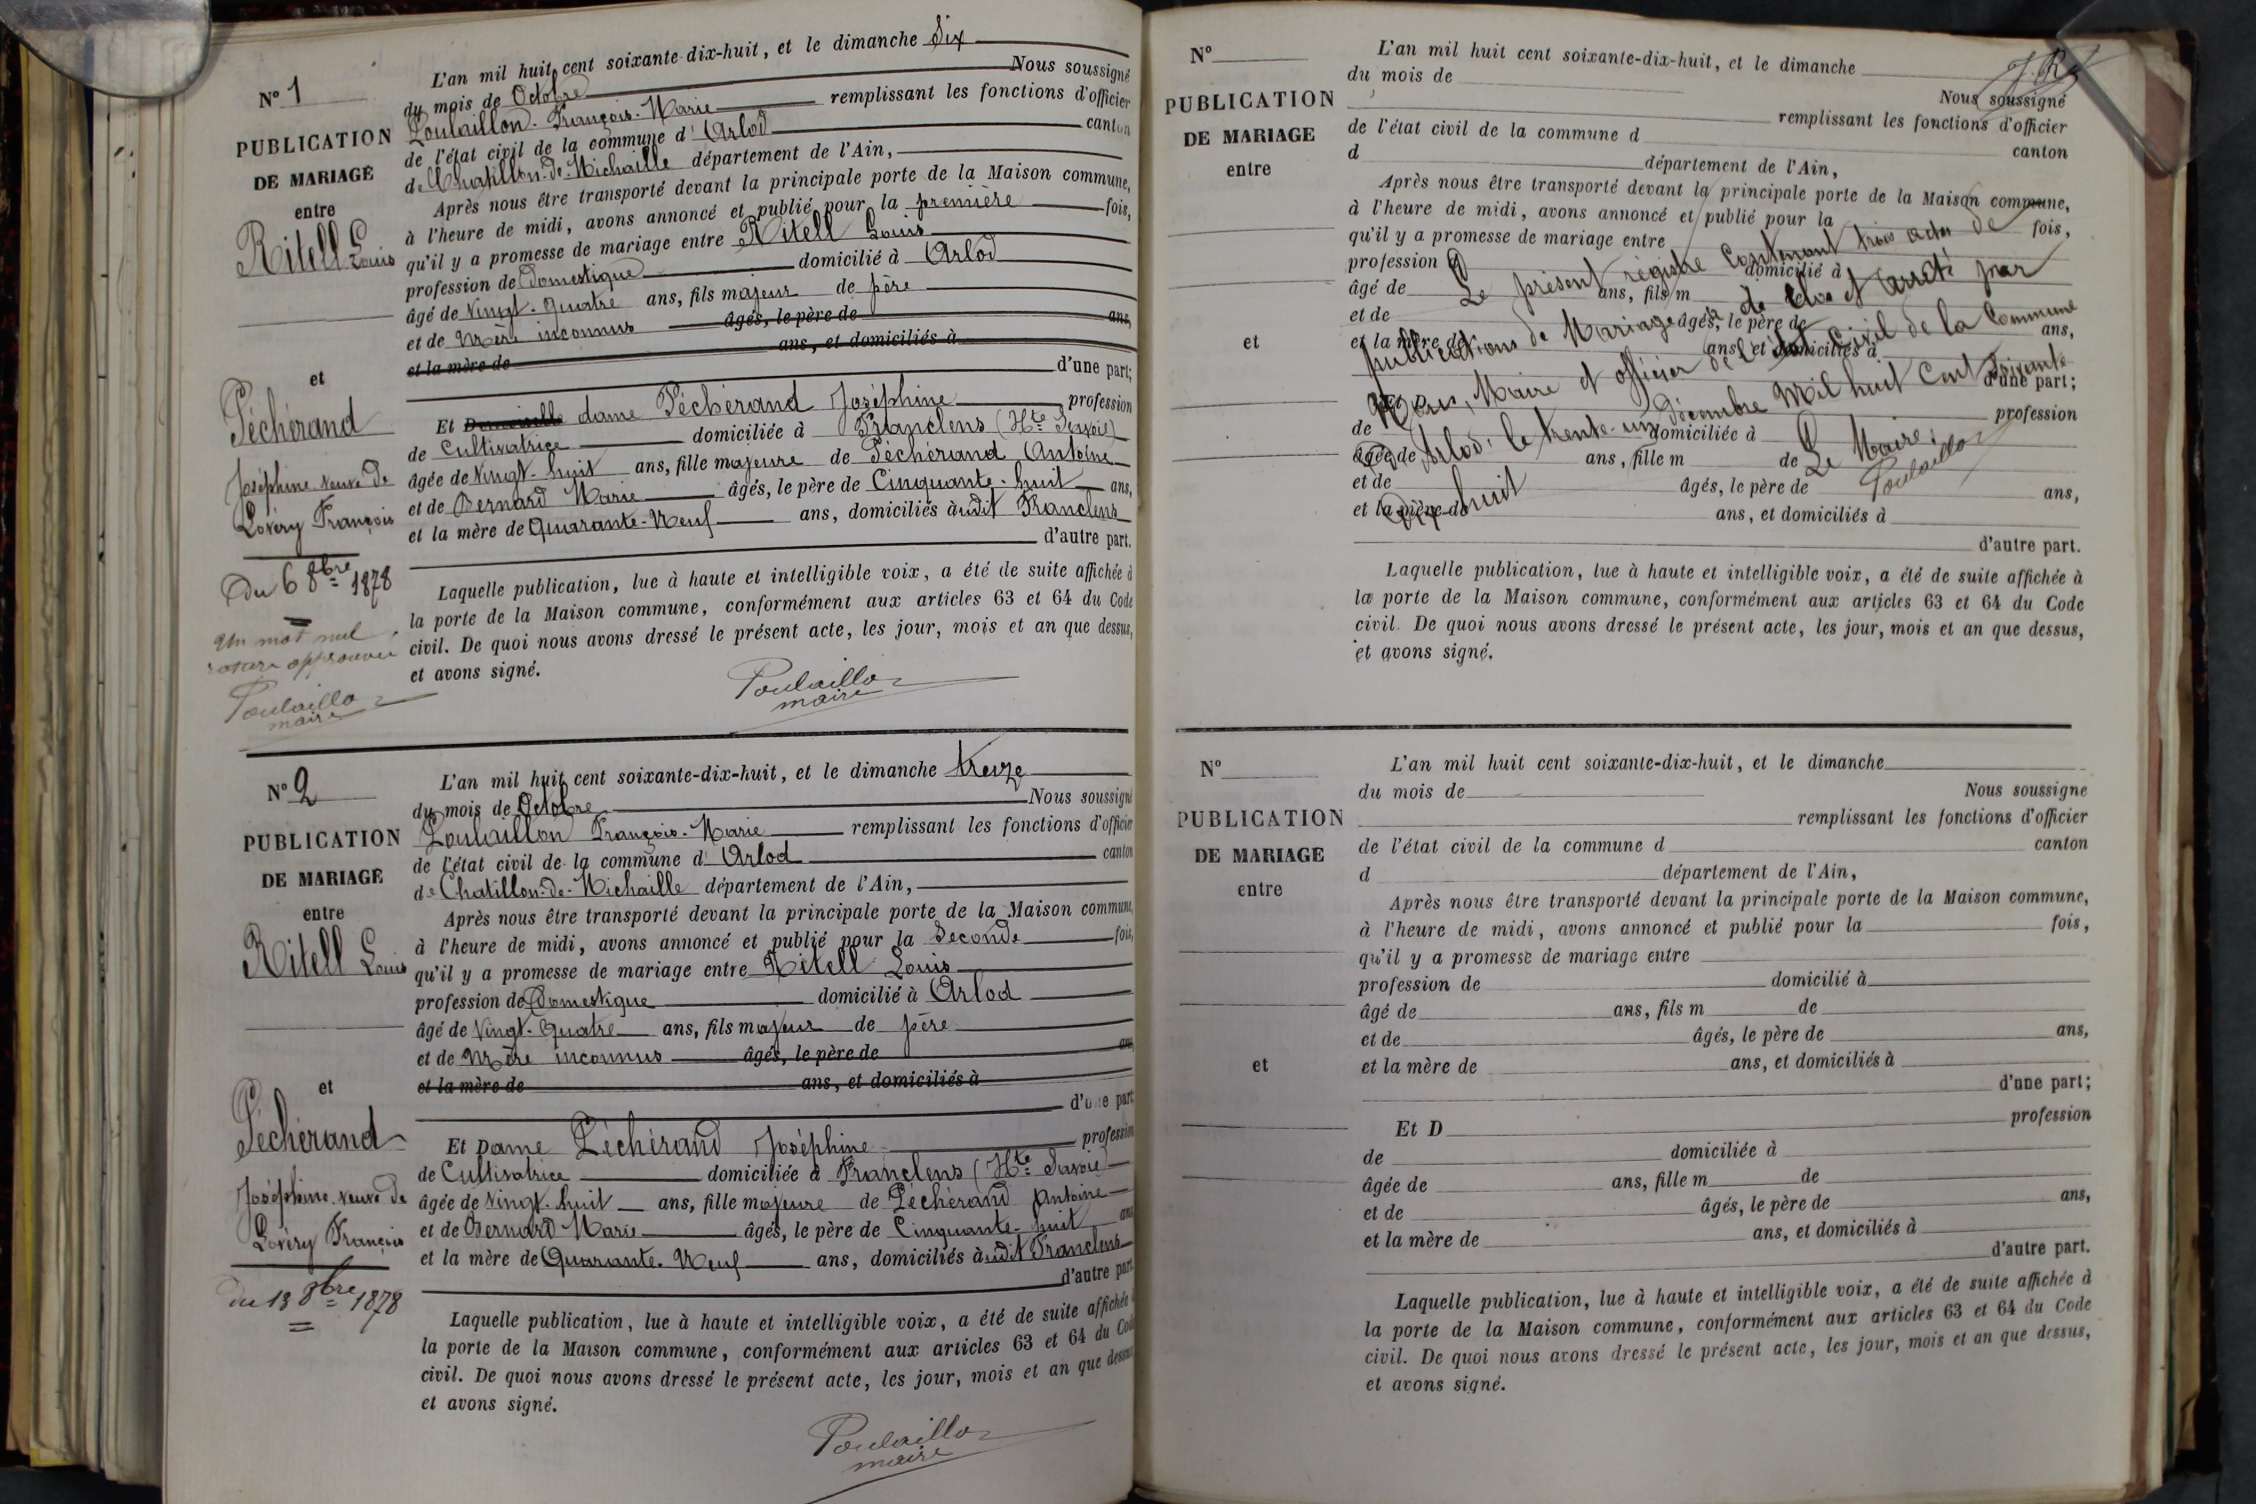 N° 1
PUBLICATION
DE MARIAGE
entre
Ritell Louis
et
Péchérand
Joséphine veuve de
Lovéry François
Du 6 8bre 1878
un mot nul
approuvé
Poulaillon
maire
L'an mil huit cent soixante-dix-huit, et le dimanche Six
du mois de Octobre Nous soussigné
Poulaillon François-Marie remplissant les fonctions d'officier
de l'état civil de la commune d'Arlod canton
de Chatillon-de-Michaille département de l'Ain,
Après nous être transporté devant la principale porte de la Maison commune,
à l'heure de midi, avons annoncé et publié pour la première fois,
qu'il y a promesse de mariage entre Ritell Louis
profession de Domestique domicilié à Arlod
âgé de Vingt-quatre ans, fils majeur de père
et de Mère inconnus âgés, le père de ans,
et la mère de ans, et domiciliés à
d'une part;
Et Demoiselle dame Péchérand Joséphine profession
de Cultivatrice domiciliée à Franclens (Hte Savoie)
âgée de Vingt-huit ans, fille majeure de Péchérand Antoine
et de Bernard Marie âgés, le père de Cinquante-huit ans,
et la mère de Quarante-Neuf ans, domiciliés àudit Franclens
d'autre part.
Laquelle publication, lue à haute et intelligible voix, a été de suite affichée à
la porte de la Maison commune, conformément aux articles 63 et 64 du Code
civil. De quoi nous avons dressé le présent acte, les jour, mois et an que dessus,
et avons signé.
Poulaillon
maire
N° 2
PUBLICATION
DE MARIAGE
entre
Ritell Louis
et
Péchérand
Joséphine veuve de
Lovéry François
du 13 8bre 1878
L'an mil huit cent soixante-dix-huit, et le dimanche treize
du mois de Octobre Nous soussigné
Poulaillon François-Marie remplissant les fonctions d'officier
de l'état civil de la commune d'Arlod canton
de Chatillon-de-Michaille département de l'Ain,
Après nous être transporté devant la principale porte de la Maison commune,
à l'heure de midi, avons annoncé et publié pour la Seconde fois,
qu'il y a promesse de mariage entre Ritell Louis
profession de Domestique domicilié à Arlod
âgé de Vingt-quatre ans, fils majeur de père
et de Mère inconnus âgés, le père de ans
et la mère de ans, et domiciliés à
d'une part
Et Dame Péchérand Joséphine profession
de Cultivatrice domiciliée à Franclens (Hte Savoie)
âgée de Vingt-huit ans, fille majeure de Péchérand Antoine
et de Bernard Marie âgés, le père de Cinquante-huit ans
et la mère de Quarante-Neuf ans, domiciliés àudit Franclens
d'autre part
Laquelle publication, lue à haute et intelligible voix, a été de suite affichée à
la porte de la Maison commune, conformément aux articles 63 et 64 du Code
civil. De quoi nous avons dressé le présent acte, les jour, mois et an que dessus
et avons signé.
Poulaillon
maire
N°
PUBLICATION
DE MARIAGE
entre
et
L'an mil huit cent soixante-dix-huit, et le dimanche
du mois de Nous soussigné
remplissant les fonctions d'officier
de l'état civil de la commune d canton
d département de l'Ain,
Après nous être transporté devant la principale porte de la Maison commune,
à l'heure de midi, avons annoncé et publié pour la fois,
qu'il y a promesse de mariage entre
profession d domicilié à
âgé de ans, fils m de
et de âgés, le père de ans,
et la mère de ans, et domiciliés à
d'une part;
Et D profession
de domiciliée à
âgée de ans, fille m de
et de âgés, le père de ans,
et la mère de ans, et domiciliés à
d'autre part.
Le présent régistre contenant trois actes de
publications de Mariage a été clos et arrêté par
Nous, Maire et officier de l'état civil de la Commune
d'Arlod, le trente-un Décembre Mil huit Cent Soixante
Dix-huit
Le Maire,
Poulaillon
Laquelle publication, lue à haute et intelligible voix, a été de suite affichée à
la porte de la Maison commune, conformément aux articles 63 et 64 du Code
civil. De quoi nous avons dressé le présent acte, les jour, mois et an que dessus,
et avons signé.
N°
PUBLICATION
DE MARIAGE
entre
et
L'an mil huit cent soixante-dix-huit, et le dimanche
du mois de Nous soussigne
remplissant les fonctions d'officier
de l'état civil de la commune d canton
d département de l'Ain,
Après nous être transporté devant la principale porte de la Maison commune,
à l'heure de midi, avons annoncé et publié pour la fois,
qu'il y a promesse de mariage entre
profession de domicilié à
âgé de ans, fils m de
et de âgés, le père de ans,
et la mère de ans, et domiciliés à
d'une part;
Et D profession
de domiciliée à
âgée de ans, fille m de
et de âgés, le père de ans,
et la mère de ans, et domiciliés à
d'autre part.
Laquelle publication, lue à haute et intelligible voix, a été de suite affichée à
la porte de la Maison commune, conformément aux articles 63 et 64 du Code
civil. De quoi nous avons dressé le présent acte, les jour, mois et an que dessus,
et avons signé.